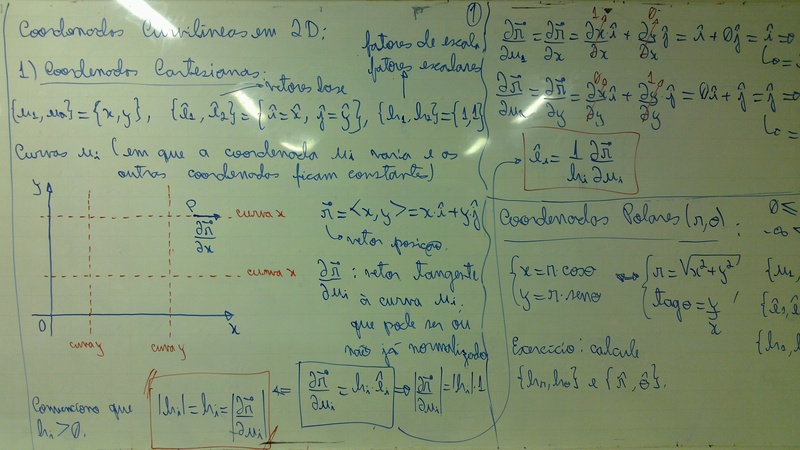 ①
Coordenadas Curvilíneas em 2D:
fatores de escala
1) Coordenadas Cartesianas:
fatores escalares
vetores base
{u₁, u₂} = {x, y}, {ê₁, ê₂} = {î = x̂, ĵ = ŷ}, {h₁, h₂} = {1,1}
Curvas uᵢ (em que a coordenada uᵢ varia e as
outras coordenadas ficam constantes)
y
P
curva x
∂r⃗/∂x
curva x
0
x
curva y
curva y
r⃗ = <x, y> = x·î + y·ĵ
vetor posição.
∂r⃗/∂uᵢ : vetor tangente
à curva uᵢ,
que pode ser ou
não já normalizado
Convenciono que
hᵢ > 0.
|hᵢ| = hᵢ = |∂r⃗/∂uᵢ| ⇐ ∂r⃗/∂uᵢ = hᵢ·êᵢ ⇒ |∂r⃗/∂uᵢ| = |hᵢ|·1
∂r⃗/∂u₁ = ∂r⃗/∂x = ∂x/∂x î + ∂y/∂x ĵ = î + 0ĵ = î ⇒
1
0
∂r⃗/∂u₂ = ∂r⃗/∂y = ∂x/∂y î + ∂y/∂y ĵ = 0î + ĵ = ĵ ⇒
0
1
êᵢ = 1/hᵢ ∂r⃗/∂uᵢ
Coordenadas Polares (r, θ):
0 ≤
-∞ <
{x = r·cosθ
y = r·senθ
⇔ {r = √x² + y²
tagθ = y/x
{u₁,
{ê₁, ê
{h₁,
Exercício: calcule
{hᵣ, hθ} e {r̂, θ̂}.